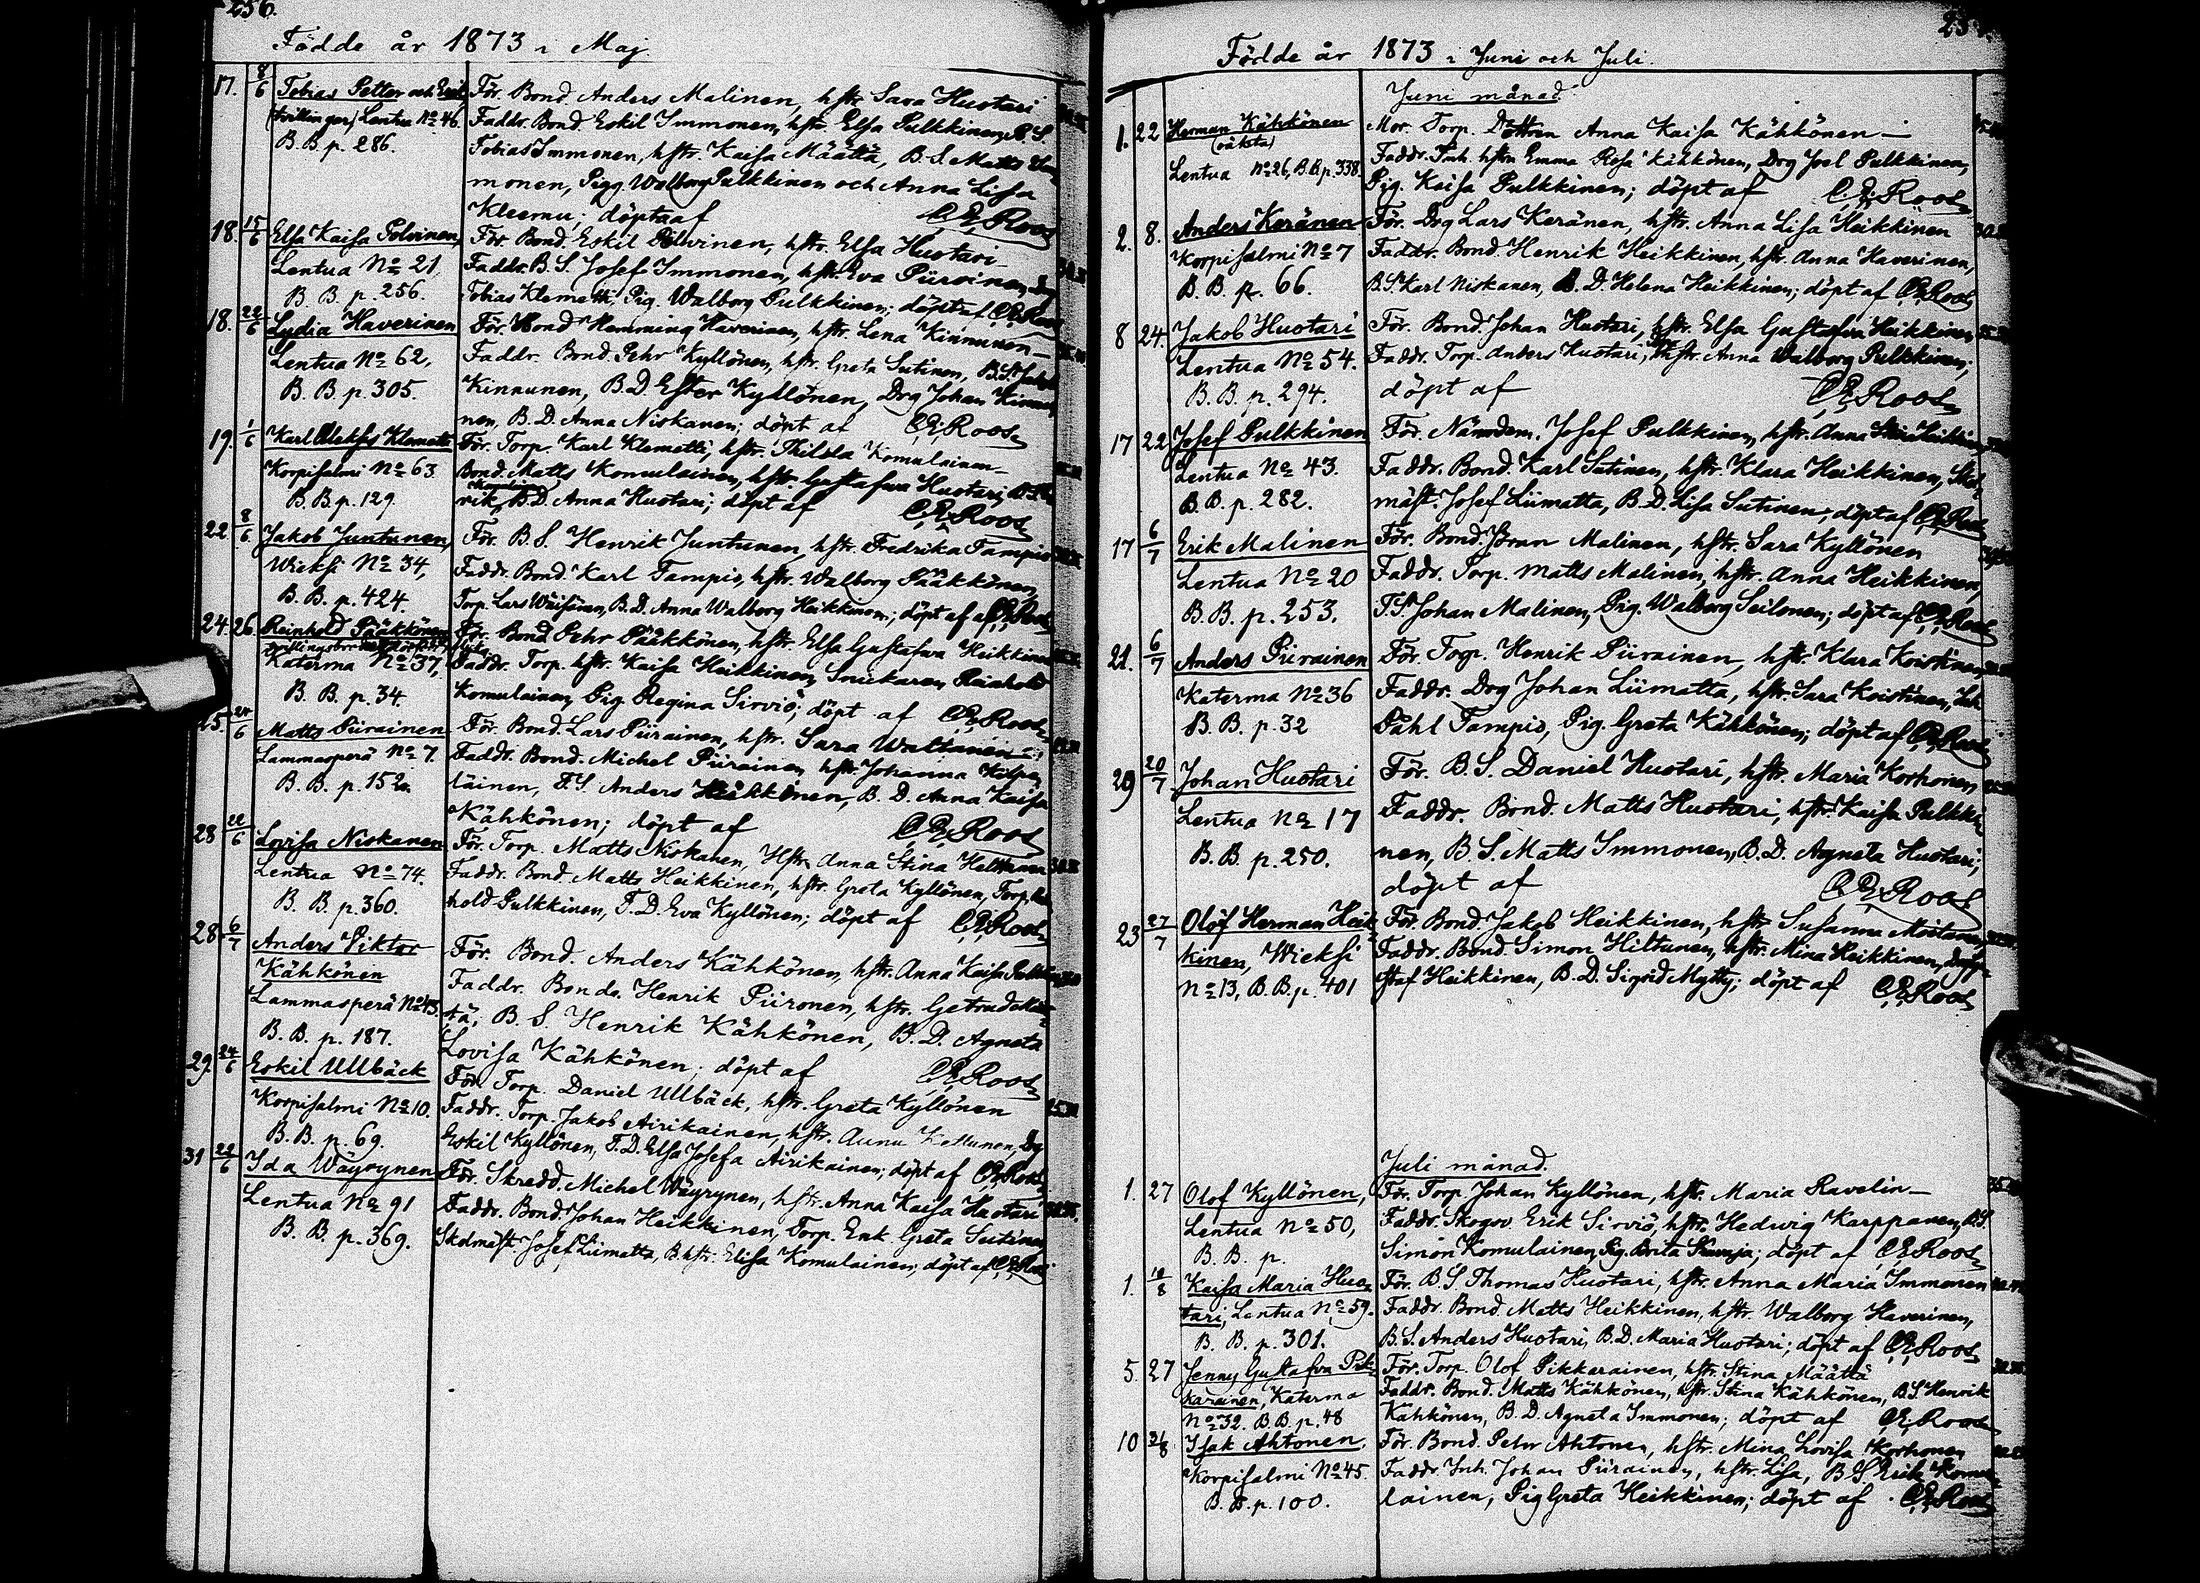 256.
Födde år 1873 i Maj
17. 8/6 Tobias Petter och Erik För. Bond. Anders Malinen, hstr. Sara Huotari
(tvillingar) Lentua No 46. Faddr. Bond. Eskil Immonen, hstr. Elsa Pulkkinen, B. S.
B. B. p. 286. Tobias Immonen, hstr. Kaisa Määttä, B. S. Matts Im-
monen, Pigg. Walborg Pulkkinen och Anna Lisa
Kleemu; döpta af C. E. Roos
18. 15/6 Elsa Kaisa Polvinen, För. Bond. Eskil Polvinen, hstr. Elsa Huotari
Lentua No 21, Faddr. B. S. Josef Immonen, hstr. Eva Piirainen, Drg
B. B. p. 256. Tobias Klemetti, Pig. Walborg Pulkkinen; döpt af C. E. Roos
18. 22/6 Lydia Haverinen För. Bond. Hemming Haverinen, hstr. Lena Kinnunen
Lentua No 62, Faddr. Bond. Pehr Kyllönen, hstr. Greta Sutinen, B. S. Jakob
B. B. p. 305. Kinnunen, B. D. Ester Kyllönen, Drg Johan Kinnu-
nen, B. D. Anna Niskanen; döpt af C. E. Roos
19. 1/6 Karl Aleksis Klemetti För. Torp. Karl Klemetti, hstr. Thilda Komulainen
Korpisalmi No 63 Bond. Matts Komulainen, hstr. Gustafva Huotari,
B. B. p. 129. rik, B. D. Anna Huotari; döpt af C. E. Roos
22 8/6 Jakob Juntunen, För. B. S. Henrik Juntunen, hstr. Fredrika Tampio
Wieksi No 34, Faddr. Bond. Karl Tampio, hstr. Walborg Pääkkönen,
B. B. p. 424. Torp. Lars Wäisänen, B. D. Anna Walborg Heikkinen; döpt af C. E. Roos
24. 26. Reinhold Pääkkönen För. Bond. Pehr Pääkkönen, hstr. Elsa Gustafva Heikkinen
Katerma No 37, Faddr. Torp. hstr. Kaisa Heikkinen, Snickaren Reinhold
B. B. p. 34. Komulainen, Pig. Regina Sirviö; döpt af C. E. Roos
25. 24/6 Matts Piirainen För. Bond. Lars Piirainen, hstr. Sara Waltanen
Lammasperä No 7. Faddr. Bond. Michel Piirainen, hstr. Johanna Kilpe-
B. B. p. 152. läinen, T. S. Anders Heikkinen, B. D. Anna Kaisa
Kähkönen; döpt af C. E. Roos
28 22/6 Lovisa Niskanen För. Torp. Matts Niskanen, Hstr. Anna Stina
Lentua No 74. Faddr. Bond. Matts Heikkinen, hstr. Greta Kyllönen, Torp. Rein-
B. B. p. 360. hold Pulkkinen, T. D. Eva Kyllönen; döpt af C. E. Roos
28. 6/7 Anders Viktor För. Bond. Anders Kähkönen, hstr. Anna Kaisa
Kähkönen Faddr. Bond. Henrik Piironen, hstr. Getrud Mät-
Lammasperä No 43. tä, B. S. Henrik Kähkönen, B. D. Agneta
B. B. p. 187. Lovisa Kähkönen; döpt af C. E. Roos
29. 24/6 Eskil Ullbäck För. Torp. Daniel Ullbäck, hstr. Greta Kyllönen
Korpisalmi No 10. Faddr. Torp. Jakob Airikainen, hstr. Anna Kettunen, Drg
B. B. p. 69. Eskil Kyllönen, T. D. Elsa Josefa Airikainen; döpt af C. E. Roos
31 22/6 Ida Wäyrynen För. Skredd. Michel Wäyrynen, hstr. Anna Kaisa Huotari
Lentua No 91 Faddr. Bond. Johan Heikkinen, Torp. Enk. Greta Sutinen,
B. B. p. 369. Skolmäst. Josef Liimatta, B. hstr. Elisa Komulainen; döpt af C. E. Roos
Födde år 1873 i Juni och Juli.
Juni månad
1. 22 Herman Kähkönen Mor. Torp. Dottren Anna Kaisa Kähkönen
(oäkta) Faddr. Inh. hstrn Emma Rosa Kähkönen, Drg Joel Pulkkinen,
Lentua No 26, B. B. p. 338. Pig. Kaisa Pulkkinen; döpt af C. E. Roos
2. 8. Anders Keränen För. Drg Lars Keränen, hstr. Anna Lisa Heikkinen
Korpisalmi No 7 Faddr. Bond. Henrik Heikkinen, hstr. Anna Haverinen,
B. B. p. 66. B. S. Karl Niskanen, B. D. Helena Heikkinen; döpt af C. E. Roos
8 24. Jakob Huotari För. Bond. Johan Huotari, hstr. Elsa Gustafva Heikkinen
Lentua No 54. Faddr. Torp. Anders Huotari, hstr. Anna Walborg Pulkkinen;
B. B. p. 294. döpt af C. E. Roos
17 22 Josef Pulkkinen För. Nämdem. Josef Pulkkinen, hstr. Anna Stina Heikkinen
Lentua No 43. Faddr. Bond. Karl Sutinen, hstr. Klara Heikkinen, Skol-
B. B. p. 282. mäst. Josef Liimatta, B. D. Lisa Sutinen; döpt af C. E. Roos
17 6/7 Erik Malinen För. Bond. Göran Malinen, hstr. Sara Kyllönen
Lentua No 20 Faddr. Torp. Matts Malinen, hstr. Anna Heikkinen,
B. B. p. 253. T. S. Johan Malinen, Pig. Walborg Seilonen; döpt af C. E. Roos
21. 6/7 Anders Piirainen För. Torp. Henrik Piirainen, hstr. Klara Koistinen
Katerma No 36 Faddr. Drg Johan Liimatta, hstr. Sara Koistinen, Inh.
B. B. p. 32 Påhl Tampio, Pig. Greta Kähkönen; döpt af C. E. Roos
29 20/7 Johan Huotari För. B. S. Daniel Huotari, hstr. Maria Korhonen
Lentua No 17 Faddr. Bond. Matts Huotari, hstr. Kaisa Pulkki-
B. B. p. 250. nen, B. S. Matts Immonen, B. D. Agneta Huotari;
döpt af C. E. Roos
23 27/7 Olof Herman Heik- För. Bond. Jakob Heikkinen, hstr. Susanna
kinen, Wieksi Faddr. Bond. Simon Hiltunen, hstr. Mina Heikkinen,
No 13, B. B. p. 401 staf Heikkinen, B. D. Sigrid Mytty; döpt af C. E. Roos
Juli månad.
1. 27 Olof Kyllönen, För. Torp. Johan Kyllönen, hstr. Maria Ravelin
Lentua No 50, Faddr. Skogsv. Erik Sirviö, hstr. Hedwig Karppanen, B. S.
B. B. p. Simon Komulainen, Pig. Brita; döpt af C. E. Roos
1. 10/8 Kaisa Maria Huo- För. B. S. Thomas Huotari, hstr. Anna Maria Immonen
tari, Lentua No 59. Faddr. Bond. Matts Heikkinen, hstr. Walborg Haverinen,
B. B. p. 301. B. S. Anders Huotari, B. D. Maria Huotari; döpt af C. E. Roos
5. 27 Jenny Gustafva Pik- För. Torp. Olof Pikkarainen, hstr. Stina Määttä
karainen, Katerma Faddr. Bond. Matts Kähkönen, hstr. Stina Kähkönen, B. S. Henrik
No 32. B. B. p. 48 Kähkönen, B. D. Agneta Immonen; döpt af C. E. Roos
10 Isak Ahtonen, För. Bond. Pehr Ahtonen, hstr. Mina Lovisa Korhonen
Korpisalmi No 45. Faddr. Inh. Johan Piirainen, hstr. Lisa, B. S. Erik Komu-
B. B. p. 100. lainen, Pig Greta Heikkinen; döpt af C. E. Roos